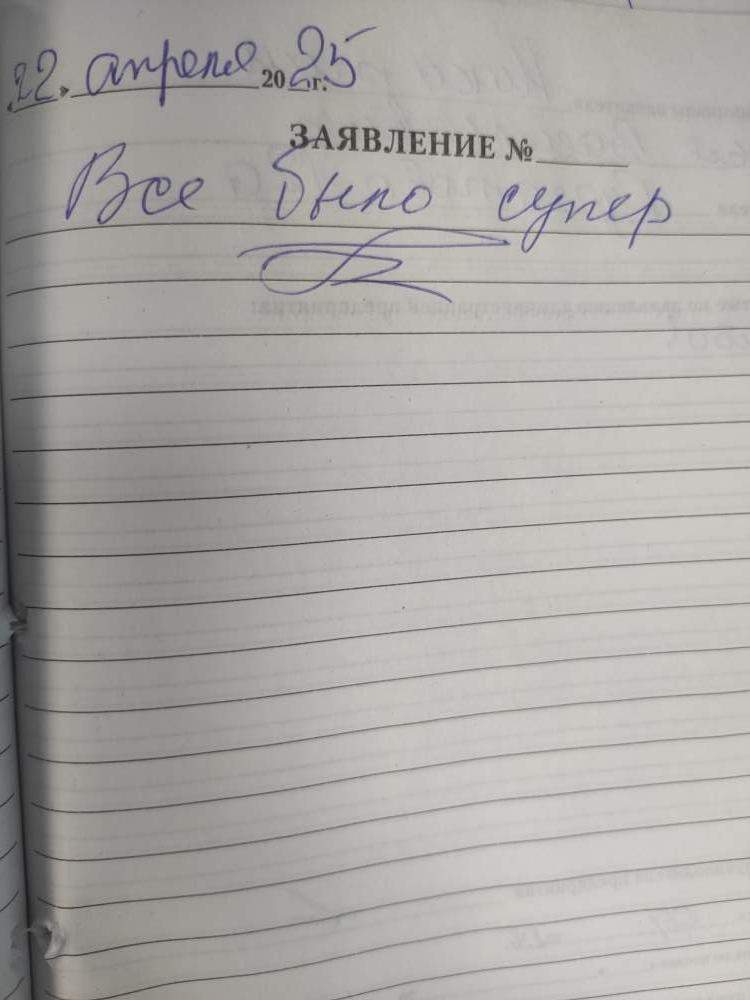 «22» апреля 2025 г.
ЗАЯВЛЕНИЕ №
Все было супер